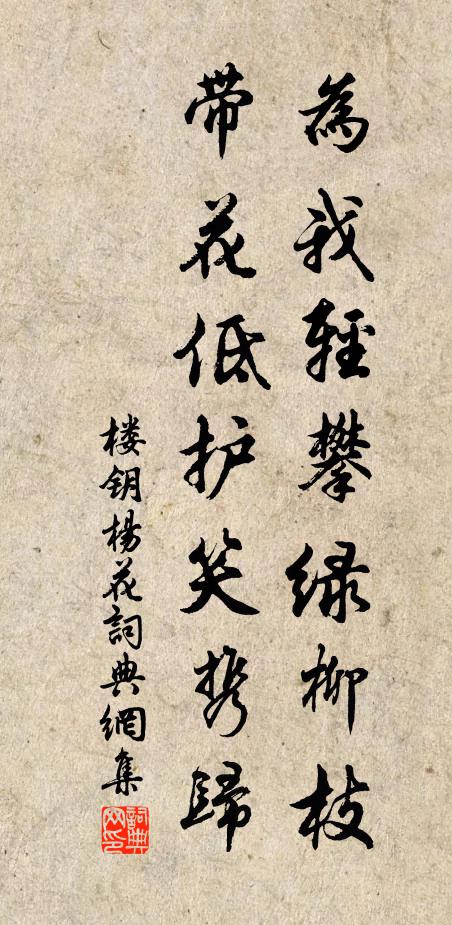 為我輕攀绿柳枝
带花低护笑携歸
楼钥楊花詞典網集
詞典网印